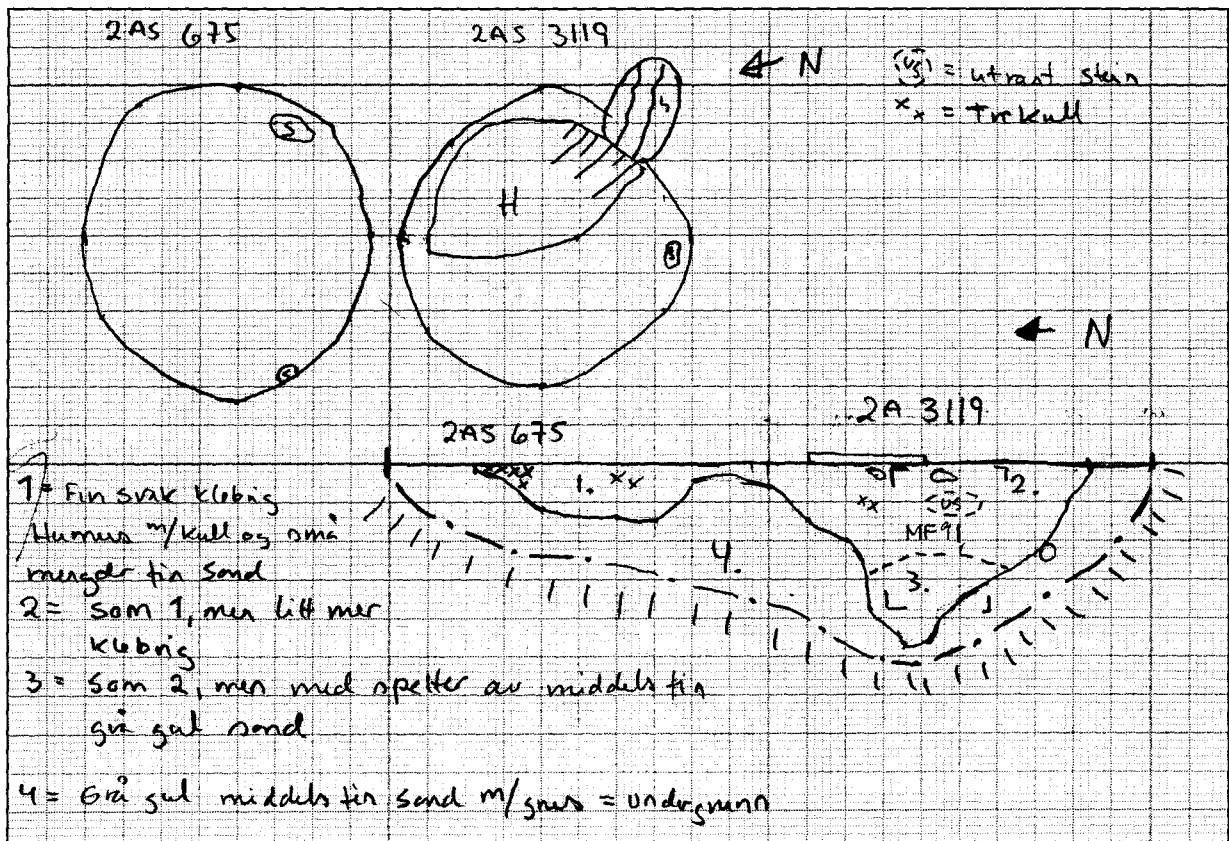 2AS 675
2AS 3119
N
US = utrast stein
x x = Trekull
S
S
S
H
N
2AS 675
2A 3119
1.
x x
2.
x x
US
MF91
3.
4.
1 = Fin svak klebrig
Humus m/kull og små
mengder fin sand
2 = som 1, men litt mer
klebrig
3 = som 2, men med spetter av middels fin
grå gul sand
4 = Grå gul middels fin sand m/grus = undergrunn